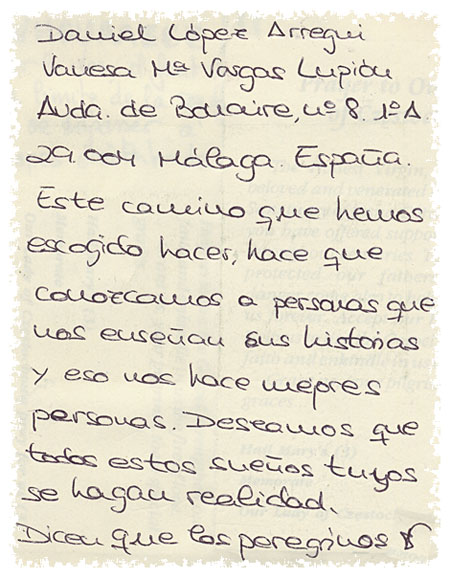 Daniel López Arregui
Vanesa Mª Vargas Lupión
Avda. de Bonaire, nº 8. 1º A.
29.004 Málaga. España.
Este camino que hemos
escogido hacer, hace que
conozcamos a personas que
nos enseñan sus historias
y eso nos hace mejores
personas. Deseamos que
todos estos sueños tuyos
se hagan realidad.
Dicen que los peregrinos